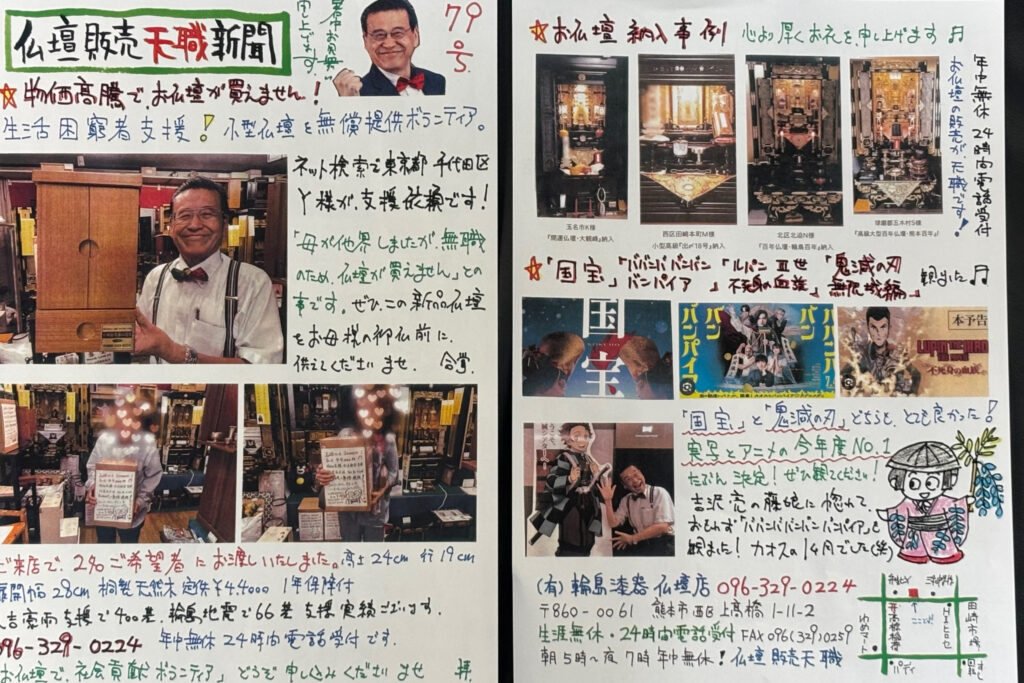 仏壇販売天職新聞
暑中お見舞い
申し上げます。
79
☆物価高騰でお仏壇が買えません!
生活困窮者支援!小型仏壇を無償提供ボランティア。
ネット検索で東京都千代田区
Y様が支援依頼です!
「母が他界しましたが無職
のため仏壇が買えません」との
事です。ぜひこの新品仏壇
をお母様の御仏前に
供えてくださいませ 合掌
ご来店で、2名ご希望者にお渡しいたしました。高さ24cm 行19cm
扉開幅28cm 桐製天然木 定価¥44000 1年保障付
豪雨支援で400基、輪島地震で66基支援実績ございます。
096-329-0224 年中無休24時間電話受付です。
お仏壇で、社会貢献ボランティア」どうぞ申し込みくださいませ 拝
☆お仏壇 納入事例 心より厚くお礼を申し上げます♬
年中無休24時間電話受付
お仏壇の販売が、天職です!
玉名市K様
『開運仏壇・大観峰』納入
西区田崎本町M様
小型高級『出〆18号』納入
北区北迫N様
『百年仏壇・輪島百年』納入
球磨郡五木村S様
『高級大型百年仏壇・熊本百年』
☆「国宝」「ババンババンバンバンパイア」「ルパン三世 不死身の血族」「鬼滅の刃 無限城編」観ました♬
国宝
バンパイア
バン
本予告
LUPIN THE IIIRD
"不死身の血族"
「国宝」と「鬼滅の刃」どちらも、とても良かった!
実写とアニメの今年度No.1
たぶん決定!ぜひ観てください!
吉沢亮の藤娘に惚れて、
おもわず「ババンババンバンバンパイア」も
観ました!カオスの1ヶ月でした(笑)
(有)輪島漆器仏壇店 096-329-0224
〒860-0061 熊本市西区上高橋1-11-2
生涯無休・24時間電話受付 FAX096(329)0259
朝5時～夜7時年中無休!仏壇販売天職
田崎市場
ここだよ
ゆめマート